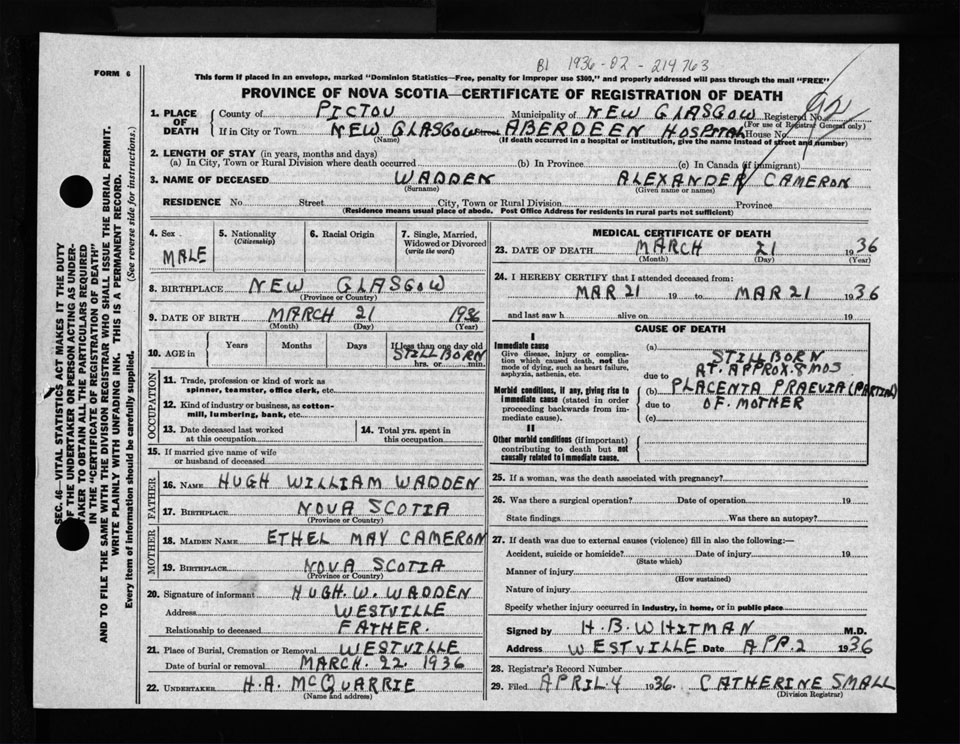 B1 1936-02-219763
FORM 6
This form if placed in an envelope, marked "Dominion Statistics—Free, penalty for improper use $300," and properly addressed will pass through the mail "FREE"
PROVINCE OF NOVA SCOTIA—CERTIFICATE OF REGISTRATION OF DEATH
1. PLACE OF DEATH
County of PICTOU Municipality of NEW GLASGOW Registered No.
(For use of Registrar General only)
If in City or Town NEW GLASGOW Street ABERDEEN HOSPITAL House No.
(Name) (If death occurred in a hospital or institution, give the name instead of street and number)
2. LENGTH OF STAY (in years, months and days)
(a) In City, Town or Rural Division where death occurred (b) In Province (c) In Canada (if immigrant)
3. NAME OF DECEASED WADDEN ALEXANDER CAMERON
(Surname) (Given name or names)
RESIDENCE No. Street City, Town or Rural Division Province
(Residence means usual place of abode. Post Office Address for residents in rural parts not sufficient)
4. Sex MALE
5. Nationality (Citizenship)
6. Racial Origin
7. Single, Married, Widowed or Divorced (write the word)
8. BIRTHPLACE NEW GLASGOW
(Province or Country)
9. DATE OF BIRTH MARCH 21 1936
(Month) (Day) (Year)
10. AGE in Years Months Days If less than one day old
STILLBORN
hrs. or min.
OCCUPATION
11. Trade, profession or kind of work as spinner, teamster, office clerk, etc.
12. Kind of industry or business, as cotton-mill, lumbering, bank, etc.
13. Date deceased last worked at this occupation
14. Total yrs. spent in this occupation
15. If married give name of wife or husband of deceased
FATHER
16. NAME HUGH WILLIAM WADDEN
17. BIRTHPLACE NOVA SCOTIA
(Province or Country)
MOTHER
18. MAIDEN NAME ETHEL MAY CAMERON
19. BIRTHPLACE NOVA SCOTIA
(Province or Country)
20. Signature of informant HUGH. W. WADDEN
Address WESTVILLE
Relationship to deceased FATHER.
21. Place of Burial, Cremation or Removal WESTVILLE
Date of burial or removal MARCH. 22. 1936
22. UNDERTAKER H.A. MCQUARRIE
(Name and address)
MEDICAL CERTIFICATE OF DEATH
23. DATE OF DEATH MARCH 21 1936
(Month) (Day) (Year)
24. I HEREBY CERTIFY that I attended deceased from:
MAR 21 19 to MAR 21 1936
and last saw h alive on 19
CAUSE OF DEATH
I
Immediate cause
Give disease, injury or complication which caused death, not the mode of dying, such as heart failure, asphyxia, asthenia, etc.
(a) STILLBORN
due to AT. APPROX. 8 MOS
Morbid conditions, if any, giving rise to immediate cause (stated in order proceeding backwards from immediate cause).
(b) PLACENTA PRAEVIA (PARTIAL)
due to OF. MOTHER
(c)
II
Other morbid conditions (if important) contributing to death but not causally related to immediate cause.
25. If a woman, was the death associated with pregnancy?
26. Was there a surgical operation? Date of operation 19
State findings Was there an autopsy?
27. If death was due to external causes (violence) fill in also the following:—
Accident, suicide or homicide? Date of injury 19
(State which)
Manner of injury
(How sustained)
Nature of injury
Specify whether injury occurred in industry, in home, or in public place
Signed by H.B. WHITMAN M.D.
Address WESTVILLE Date APR. 2 1936
28. Registrar's Record Number
29. Filed APRIL. 4 1936. CATHERINE SMALL
(Division Registrar)
SEC. 46—VITAL STATISTICS ACT MAKES IT THE DUTY
OF THE UNDERTAKER OR PERSON ACTING AS UNDER-
TAKER TO OBTAIN ALL THE PARTICULARS REQUIRED
IN THE "CERTIFICATE OF REGISTRATION OF DEATH"
AND TO FILE THE SAME WITH THE DIVISION REGISTRAR WHO SHALL ISSUE THE BURIAL PERMIT.
WRITE PLAINLY WITH UNFADING INK. THIS IS A PERMANENT RECORD.
Every item of information should be carefully supplied. (See reverse side for instructions.)